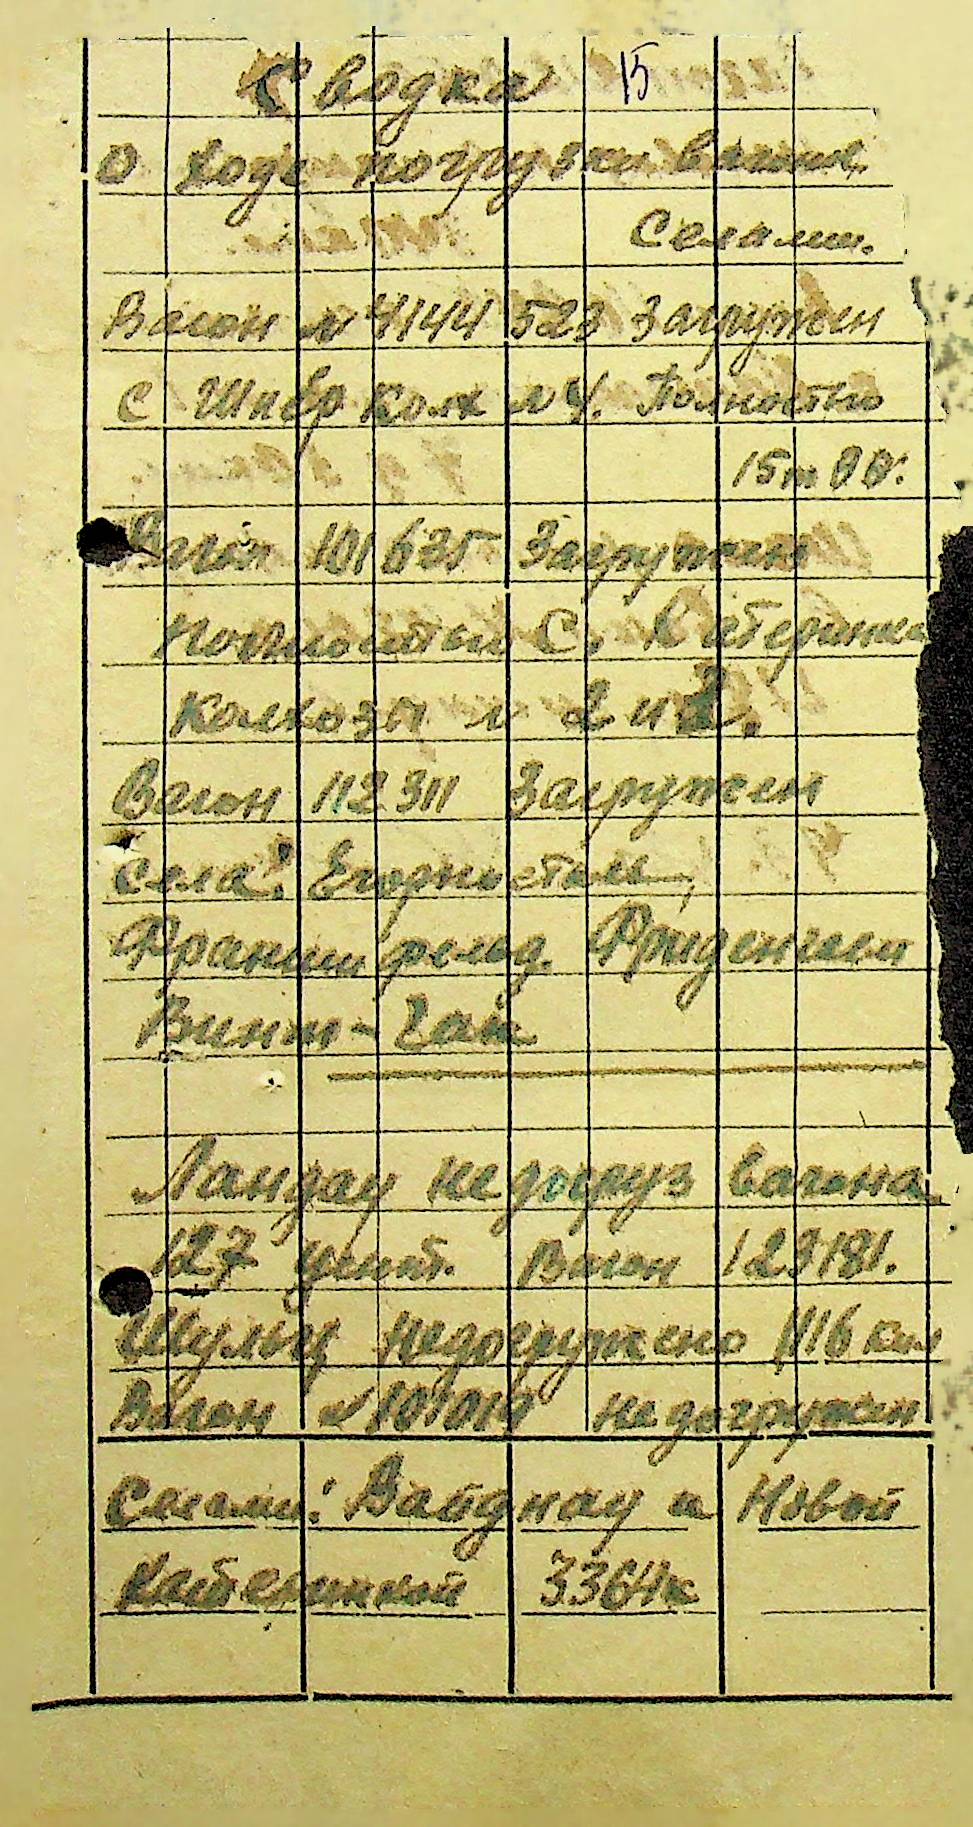 15
Сводка
о ходе погрузки вагон.
Селами.
Вагон № 4144 523 Загружен
с Шпер Колх № 4. Полностью
15 т 00.
Вагон 101635 Загружен
полностью С. Катеринка
Колхозы № 2 и 3.
Вагон 112311 Загружен
Села:
Фридентал
Винт-
Ландау недогруз вагона
127 цент. Вагон 123181.
Шульц недогружено 1116 кил
Вагон № 101019 недогружен
Селами: Вайднау и Новой
Катеринкой 3364к